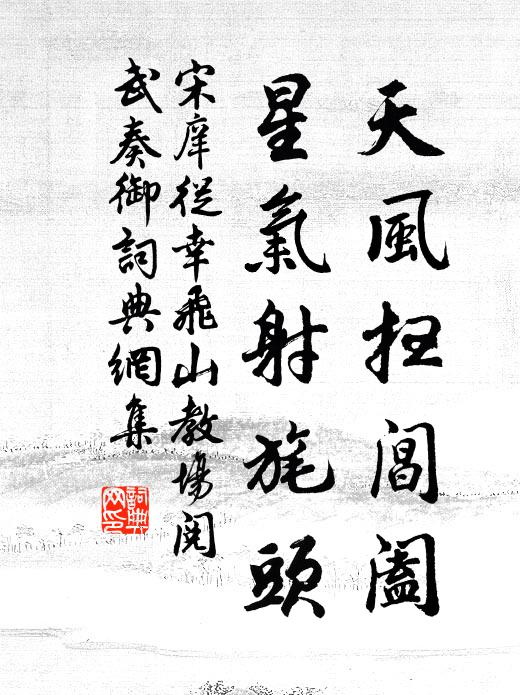 天風扫閶阖
星氣射旄頭
宋庠從幸飛山教場閱
武奏御詞典網集
詞典網印